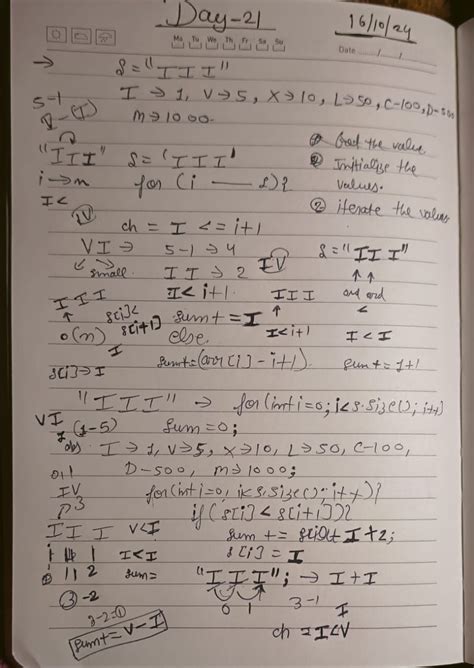 Day-21
16/10/24
Mo Tu We Th Fr Sa Su
Date / /
→ s = "III"
I → 1, V → 5, X → 10, L → 50, C-100, D-500
M → 1000.
5-1
V-(I)
① the value
② Initialize the values.
② iterate the values
"III" s = 'III'
i → n for (i — s){
I<
IV
ch = I <= i+1
VI → 5-1 → 4 s = "III"
small II → 2 IV
III I < i+1. III and and
↑ s[i]< ↑ <
s[i+1] sum+ = I I<i+1 I < I
o(n) else.
I sumt=(arr[i] - i+1). sum + = 1+1
s[i] → I
"III" → for(int i=0; i<s.size(); i++)
VI (1-5) sum=0;
I → 1, V → 5, X → 10, L → 50, C-100,
D-500, M → 1000;
IV for(int i=0, i<s.size(); i++){
3 if (s[i] < s[i+1]){
III V<I sum += I+2;
1 I<I s[i] = I
11 2 sum= "III"; → I+I
③-2 0 1 3-1 I
3-2=①
sum+=V-I
ch = I<V